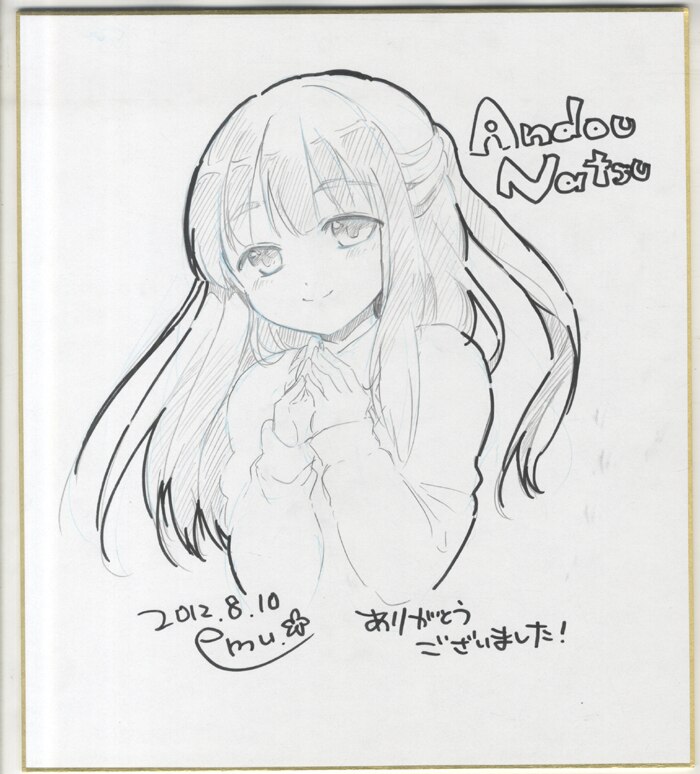 Andou
Natsu
2012.8.10
emu.
ありがとう
ございました!